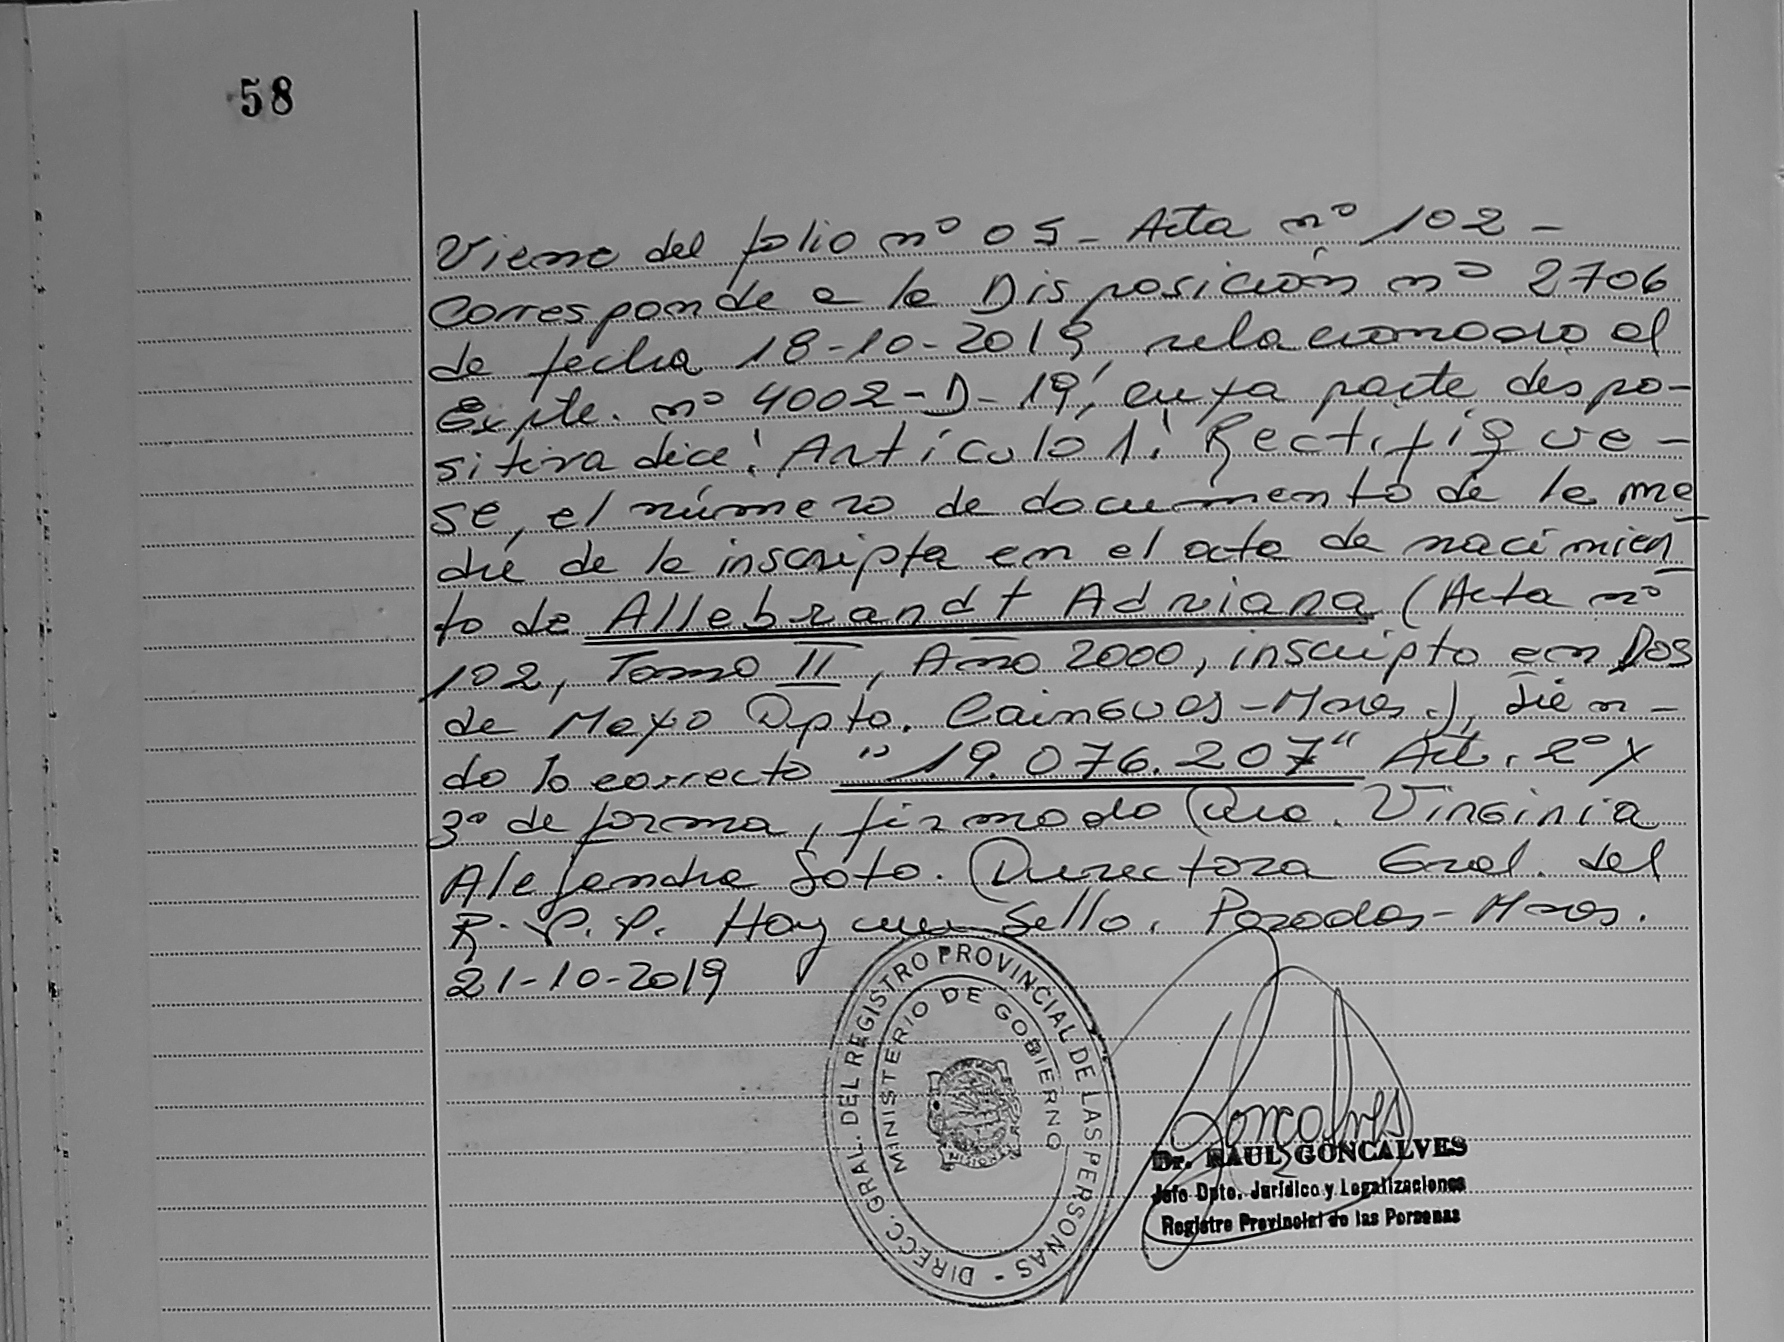 58
Viene del folio nº 05 - Acta nº 102 -
Corresponde a la Disposición nº 2706
de fecha 18-10-2019, relacionado al
Expte. nº 4002-D-19', cuya parte dispo-
sitiva dice: Artículo 1: Rectifique-
se, el número de documento de la ma
dre de la inscripta en el acta de nacimien
to de Allebrandt Adriana (Acta nº
102, Tomo II, Año 2000, inscripto en Dos
de Mayo Dpto. Cainguas-Mnes.), sien-
do lo correcto "19.076.207" Art. 2º y
3º de forma, firmado Dra. Virginia
Alejandra Soto. Directora Gral. del
R.P.P. Hay un Sello. Posadas-Mnes.
21-10-2019
DIRECC. GRAL. DEL REGISTRO PROVINCIAL DE LAS PERSONAS -
MINISTERIO DE GOBIERNO
MISIONES
Goncalves
Dr. RAUL GONCALVES
Jefe Dpto. Jurídico y Legalizaciones
Registro Provincial de las Personas